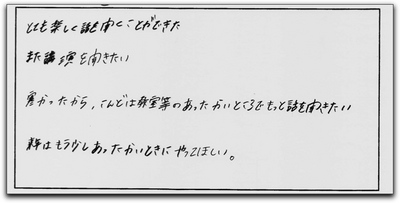 とても楽しく話を聞くことができた
また講演を聞きたい
寒かったから、こんどは教室等のあったかいところでもっと話を聞きたい
来年はもう少しあったかいときにやってほしい。